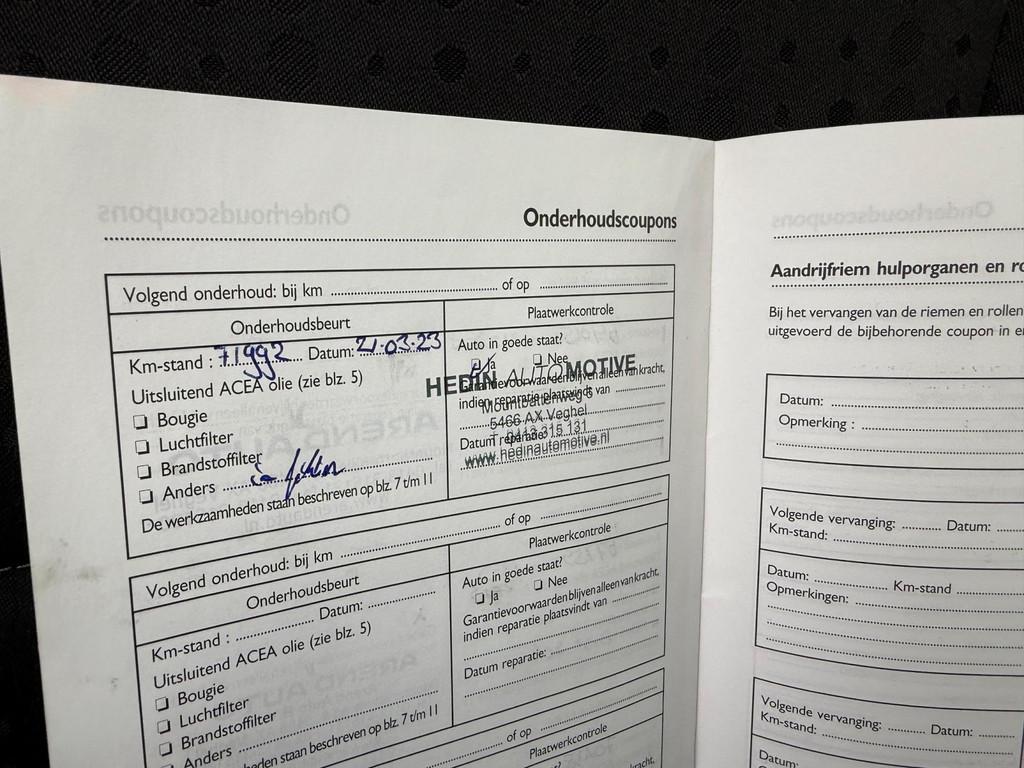 Onderhoudscoupons
Volgend onderhoud: bij km ........ of op ........
Onderhoudsbeurt
Plaatwerkcontrole
Km-stand : 71992 Datum: 21-03-23
Auto in goede staat?
Ja ❑ Nee
Uitsluitend ACEA olie (zie blz. 5)
HEDIN AUTOMOTIVE
Garantievoorwaarden blijven alleen van kracht,
indien reparatie plaatsvindt van
Mountbattenweg 6
5466 AX Veghel
Datum reparatie:
T. 0413 315 131
www.hedinautomotive.nl
❑ Bougie
❑ Luchtfilter
❑ Brandstoffilter
❑ Anders ........
De werkzaamheden staan beschreven op blz. 7 t/m 11
Volgend onderhoud: bij km ........ of op ........
Onderhoudsbeurt
Plaatwerkcontrole
Km-stand : ........ Datum: ........
Auto in goede staat?
❑ Ja ❑ Nee
Uitsluitend ACEA olie (zie blz. 5)
Garantievoorwaarden blijven alleen van kracht,
indien reparatie plaatsvindt van ........
❑ Bougie
❑ Luchtfilter
❑ Brandstoffilter
Datum reparatie: ........
Anders ........
staan beschreven op blz. 7 t/m 11
of op ........
Plaatwerkcontrole
Aandrijfriem hulporganen en
Bij het vervangen van de riemen en rollen
uitgevoerd de bijbehorende coupon in
Datum: ........
Opmerking : ........
Volgende vervanging: ........ Datum:
Km-stand: ........
Datum: ........ Km-stand ........
Opmerkingen: ........
Volgende vervanging: ........ Datum: ........
Km-stand: ........
Datum: